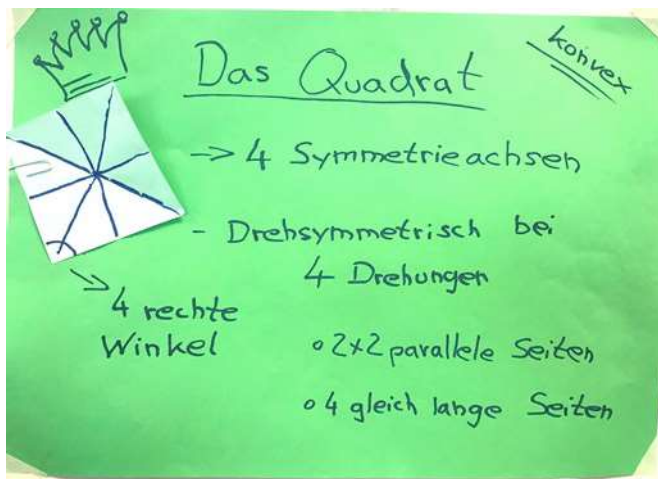 Das Quadrat
konvex
-> 4 Symmetrieachsen
- Drehsymmetrisch bei
4 Drehungen
4 rechte
Winkel
o 2x2 parallele Seiten
o 4 gleich lange Seiten